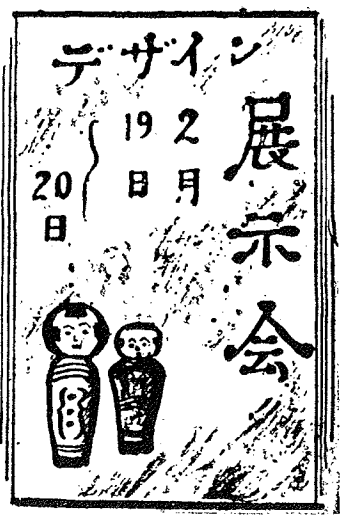 デザイン
展示会
2月
19日
〜
20日